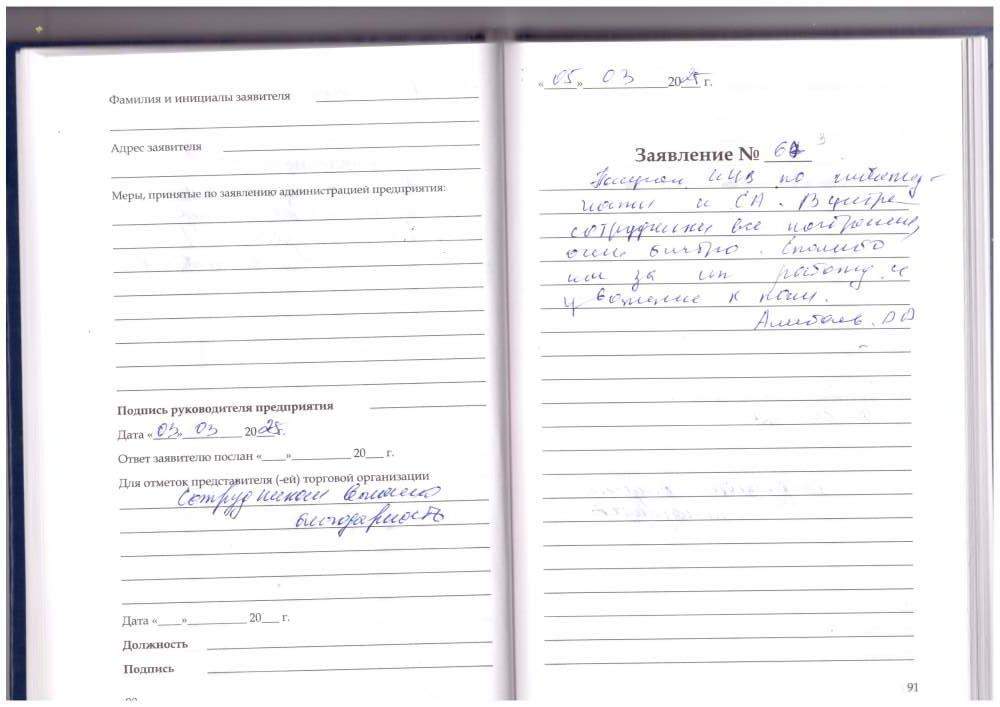 Фамилия и инициалы заявителя
Адрес заявителя
Меры, принятые по заявлению администрацией предприятия:
Подпись руководителя предприятия
Дата «03» 03 2025 г.
Ответ заявителю послан «____»___________ 20___ г.
Для отметок представителя (-ей) торговой организации
Сотрудникам
благодарность
Дата «____»___________ 20___ г.
Должность
Подпись
«05» 03 2025 г.
Заявление № 6 3
по
и СА. В центре
сотрудники все
быстро. Спасибо
им за их работу и
уважение к нам.
91